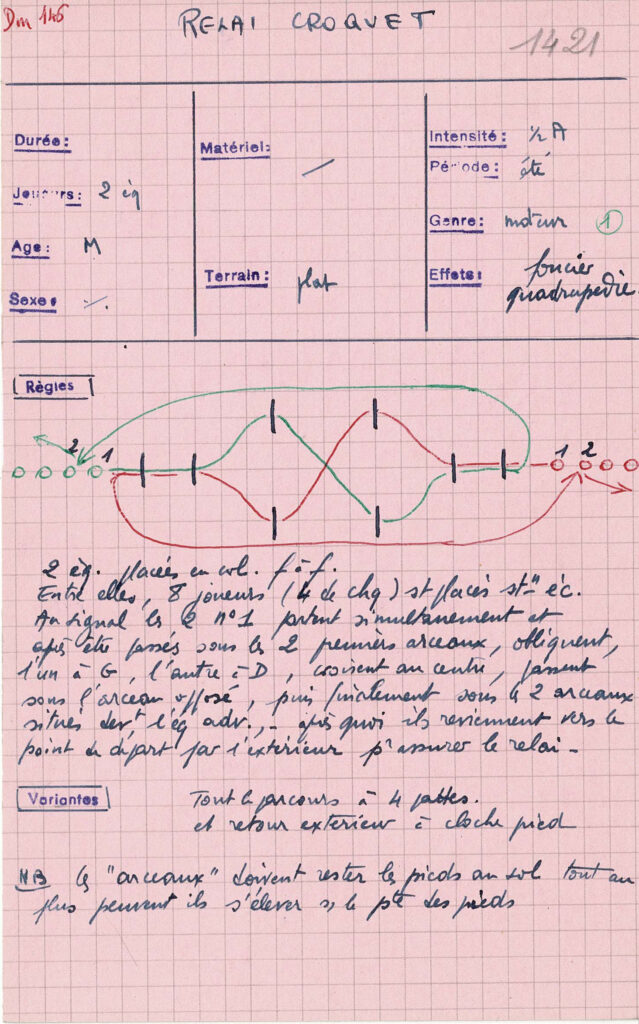 Dm 146
RELAI CROQUET
1421
Durée:
Joueurs: 2 éq
Age: M
Sexe:
Matériel:
Terrain: plat
Intensité: ½ A
Période: été
Genre: moteur 1
Effets: foncier
quadrupédie
Règles
2 1
1 2
2 éq. placées en col. f à f.
Entre elles, 8 joueurs (4 de chq) st placés st^on éc.
Au signal les 2 n°1 partent simultanément et
après être passés sous les 2 premiers arceaux, obliquent,
l'un à G, l'autre à D, croisent au centre, passent
sous l'arceau opposé, puis finalement sous les 2 arceaux
situés dev^t l'éq adv., - après quoi ils reviennent vers le
point de départ par l'extérieur p^r assurer le relai -
Variantes
Tout le parcours à 4 pattes.
et retour extérieur à cloche pied
NB les "arceaux" doivent rester les pieds au sol tout au
plus peuvent ils s'élever s^r la pte des pieds